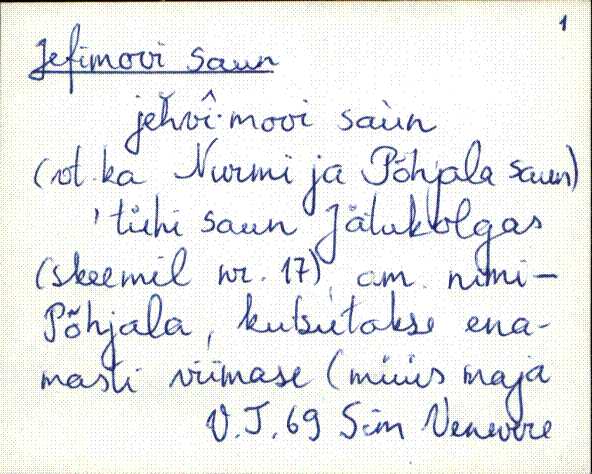 1
Jefimovi saun
jehvî·movi saùn
(vt. ka Nurmi ja Põhjala saun)
'tühi saun Jätukolgas
(skeemil nr. 17), am. nimi-
Põhjala, kutsutakse ena-
masti viimase (müüs maja
V.J. 69 Sim Venevere